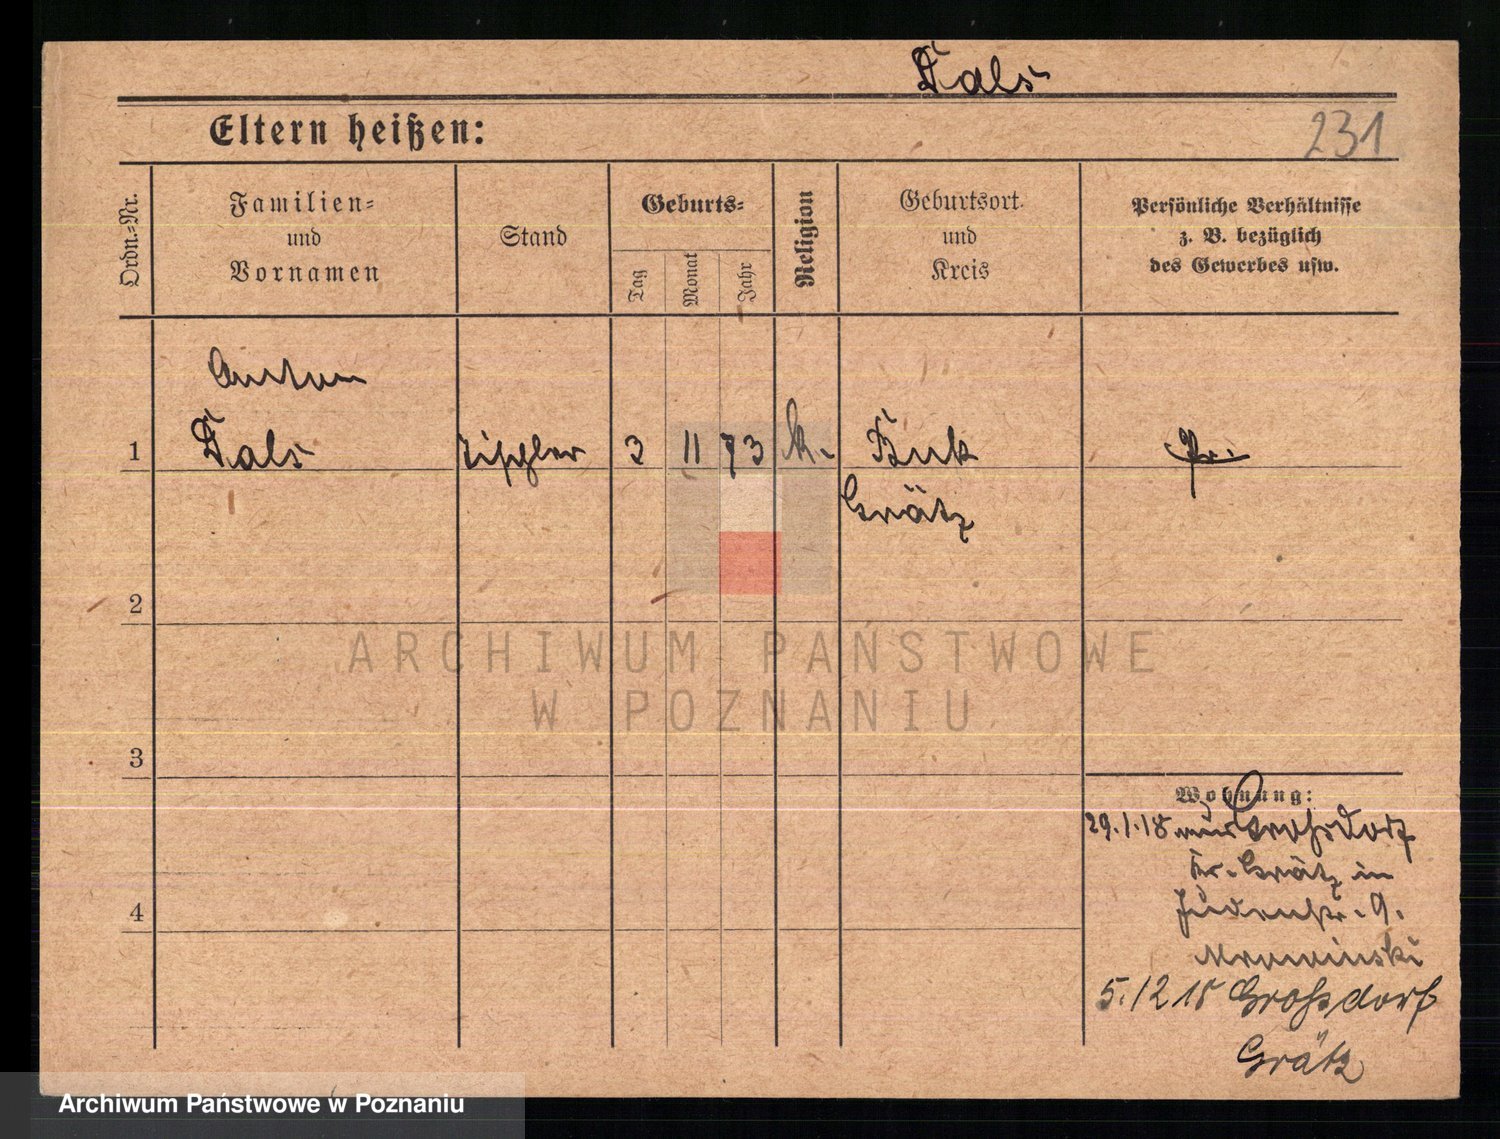 Fals
Eltern heißen:
231
Ordn.-Nr.
Familien-
und
Vornamen
Stand
Geburts-
Tag
Monat
Jahr
Religion
Geburtsort
und
Kreis
Persönliche Verhältnisse
z. B. bezüglich
des Gewerbes usw.
Anton
1 Fals Tischler 3 11 73 k. Buk Pr.
Grätz
2
3
4
Wohnung:
29.1.18 Grossdorf
Kr. Grätz in
Judenstr. 9.
Mrowinski
5.12 18 Grossdorf
Grätz
ARCHIWUM PAŃSTWOWE
W POZNANIU
Archiwum Państwowe w Poznaniu